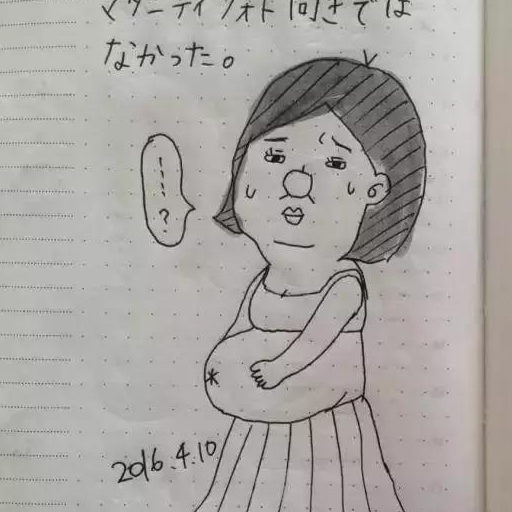 マタニティフォト向きでは
なかった。
……?
2016.4.10